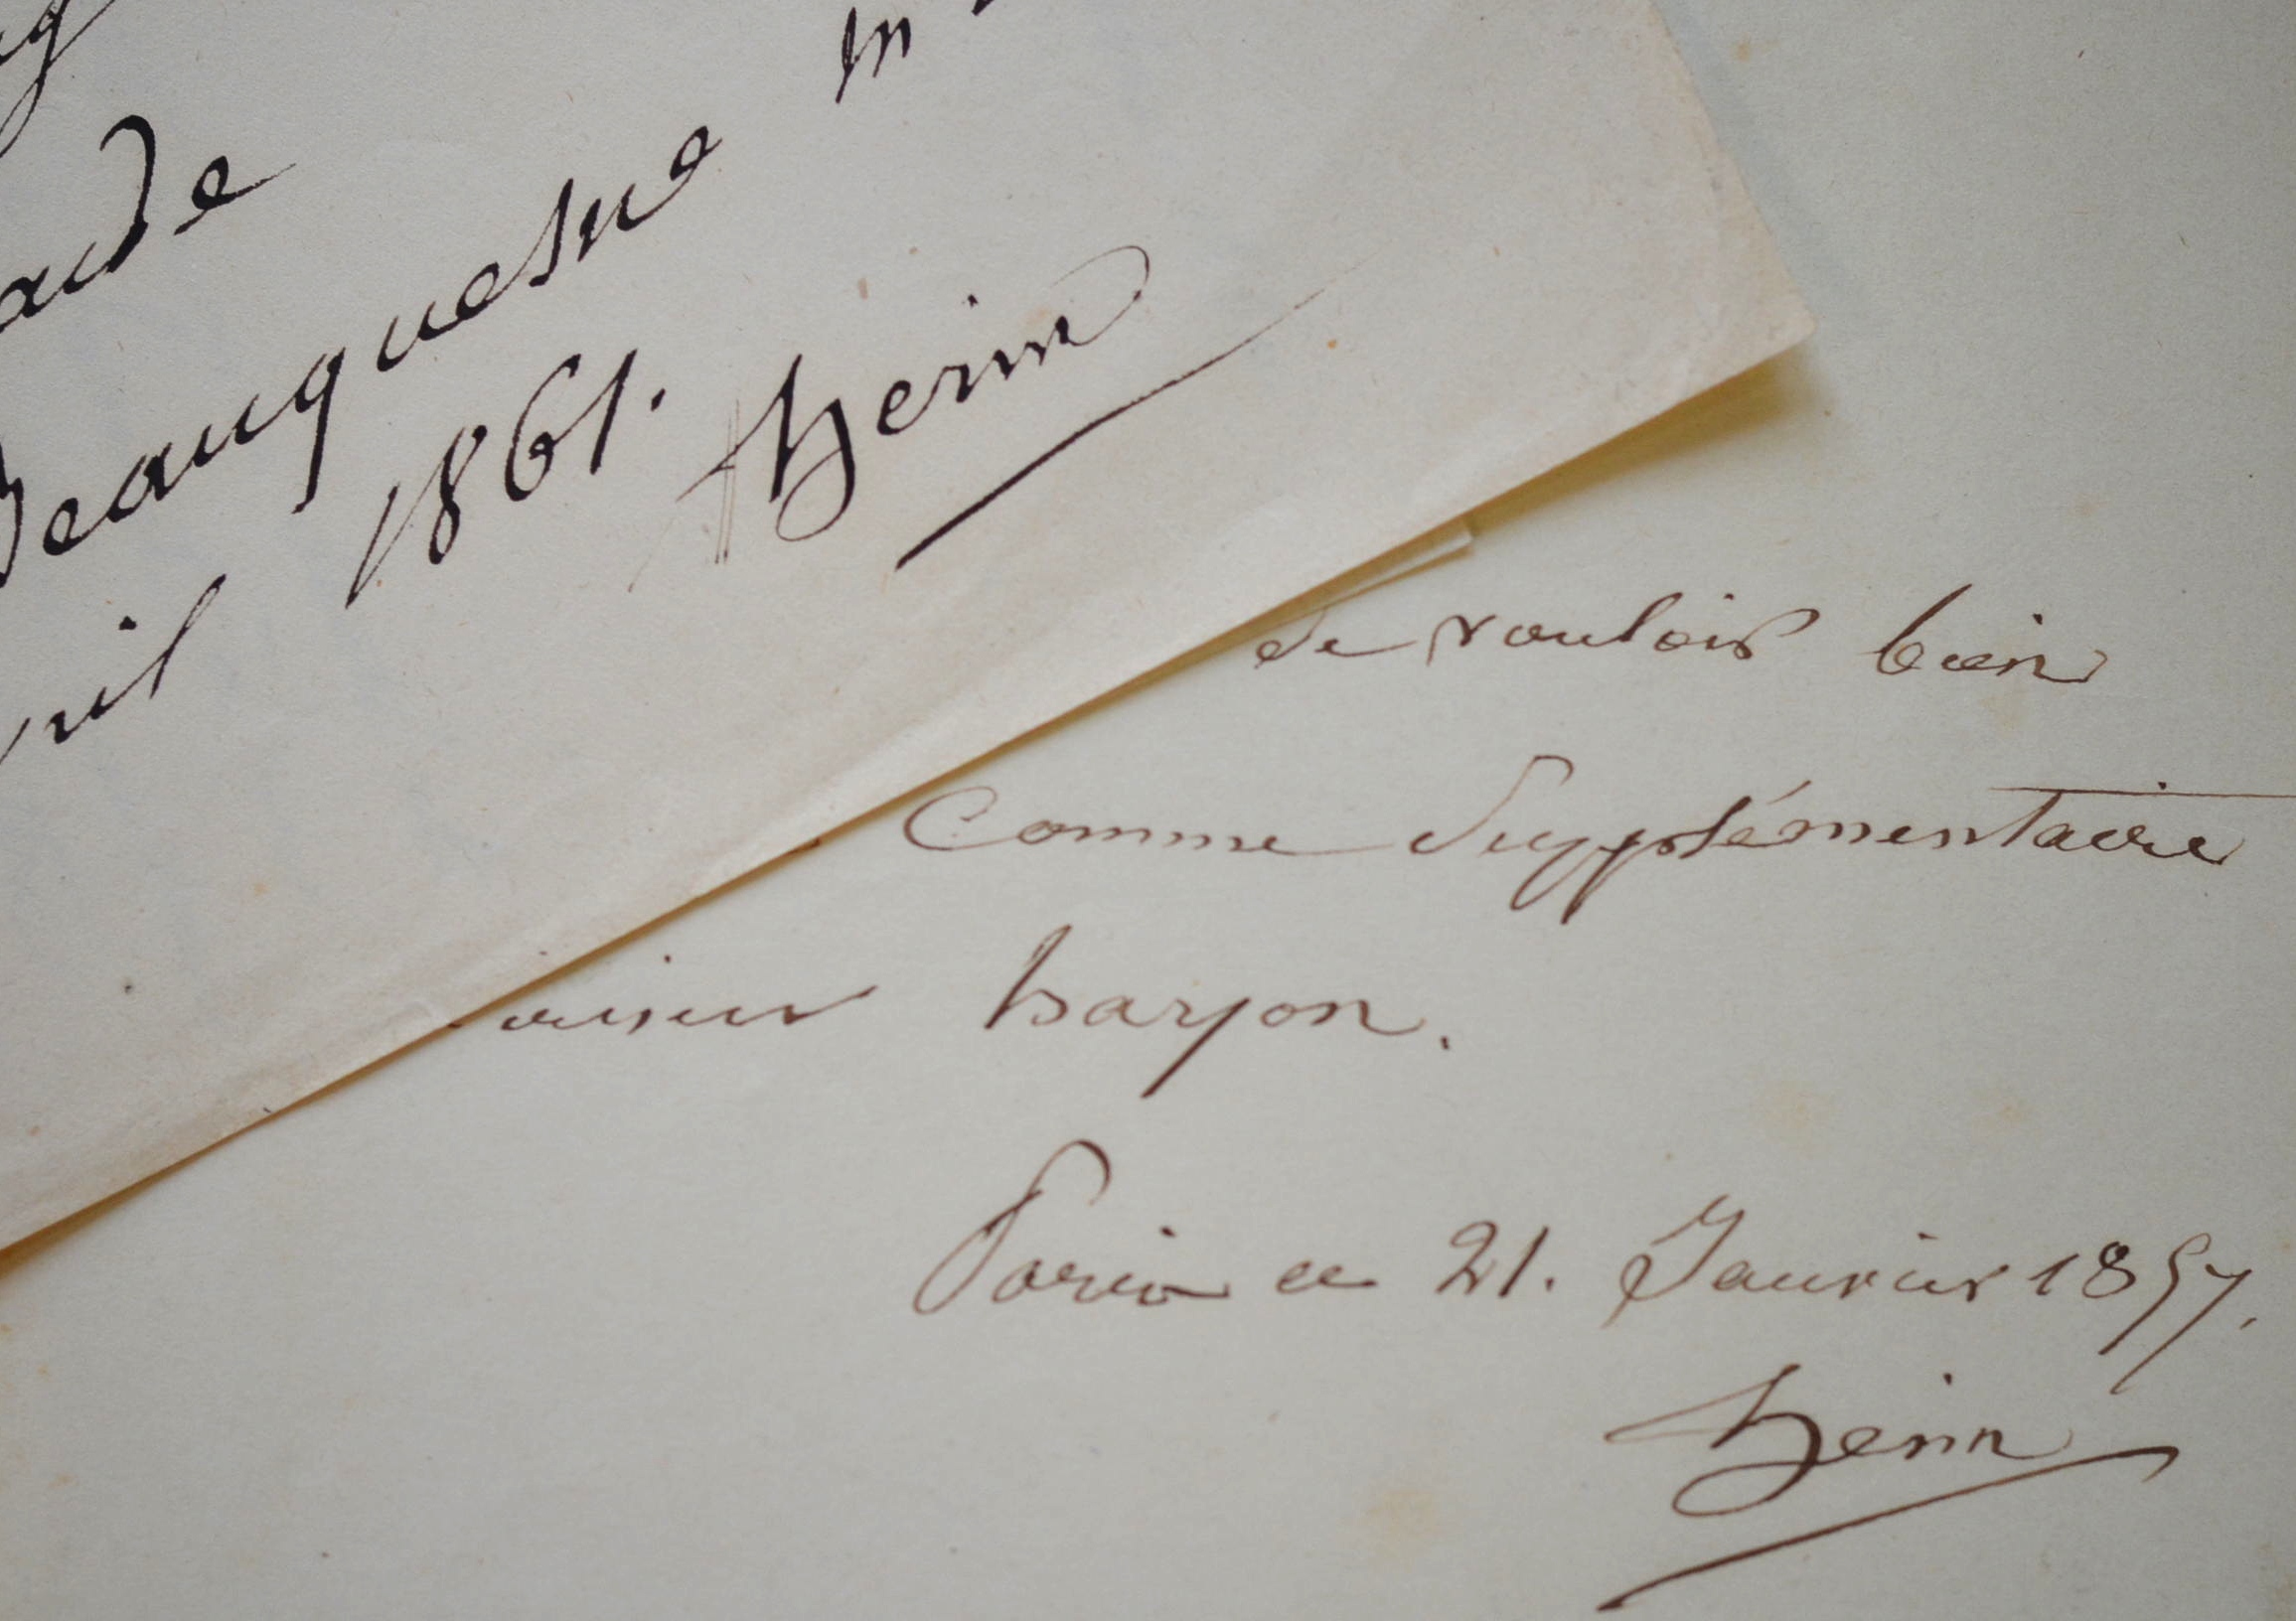 Beauquesne
1861.
herin
de vouloir bien
Comme Supplémentaire
hayon.
Paris ce 21. Janvier 1857.
herin